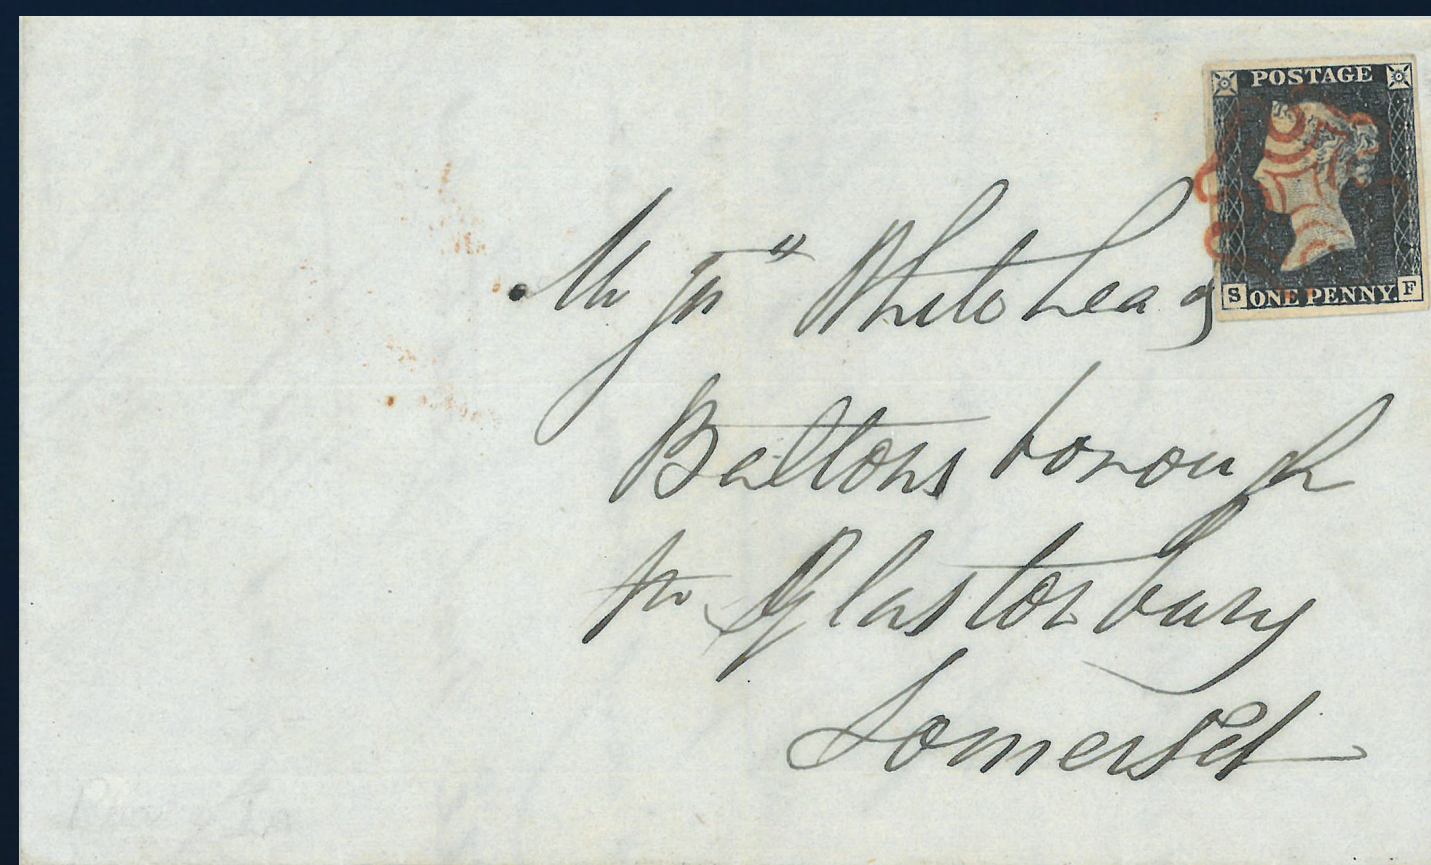 POSTAGE
S ONE PENNY. F
Mr Jnº Whitehead
Baltonsborough
Glastonbury
Somerset